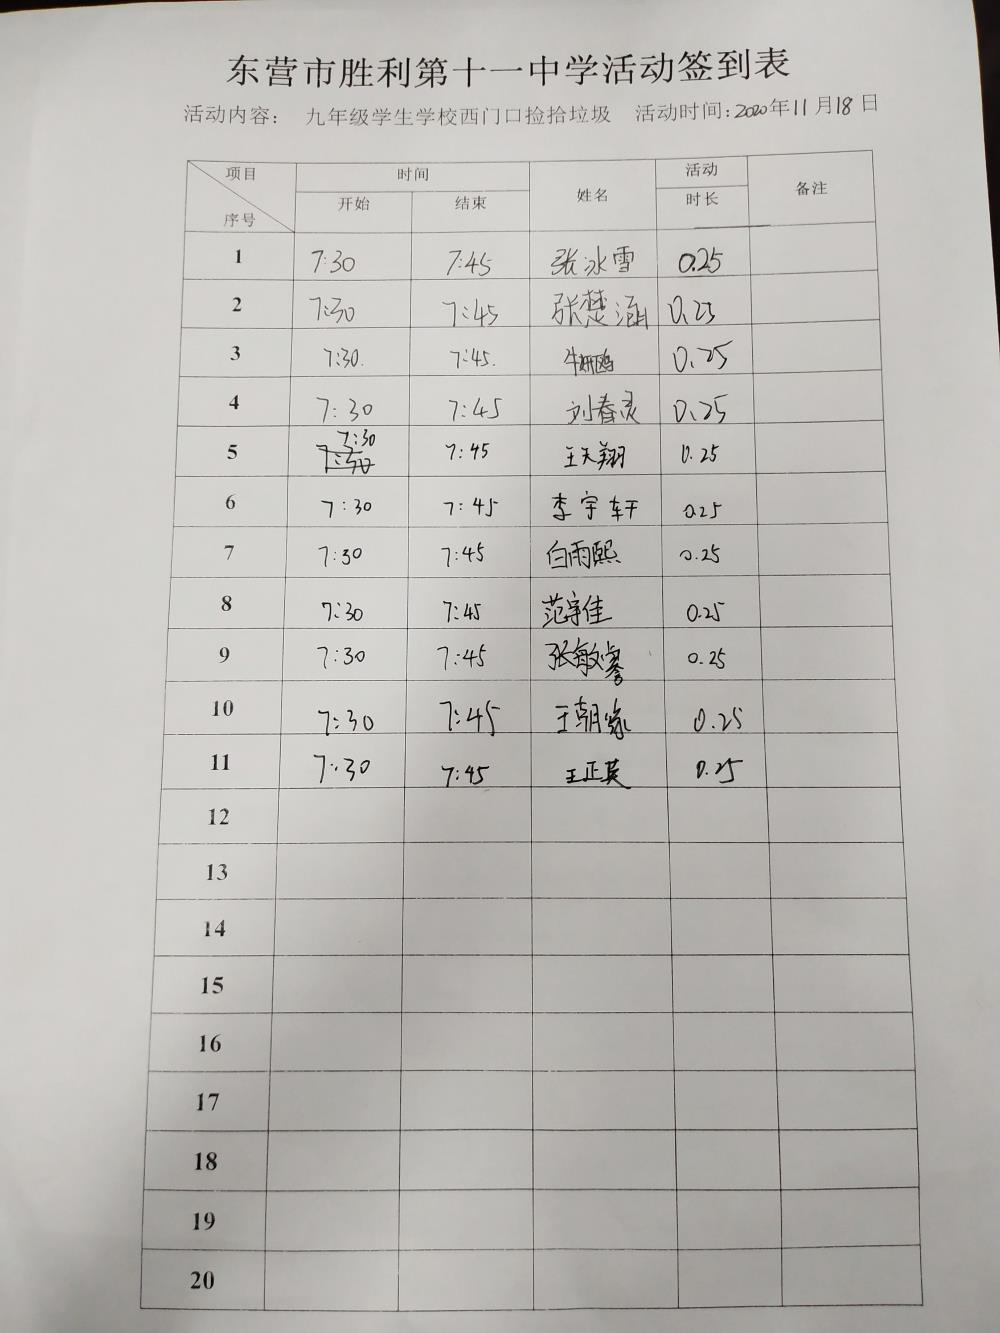 东营市胜利第十一中学活动签到表
活动内容： 九年级学生学校西门口捡拾垃圾 活动时间:2020年11月18日
项目 时间 姓名 活动 备注
序号 开始 结束 时长
1 7:30 7:45 张冰雪 0.25
2 7:30 7:45 张楚涵 0.25
3 7:30. 7:45. 0.25
4 7:30 7:45 刘春灵 0.25
7:30
5 7:45 王天翔 0.25
6 7:30 7:45 李宇轩 0.25
7 7:30 7:45 白雨熙 0.25
8 7:30 7:45 范宇佳 0.25
9 7:30 7:45 张敏睿 0.25
10 7:30 7:45 0.25
11 7:30 7:45 王正英 0.25
12
13
14
15
16
17
18
19
20